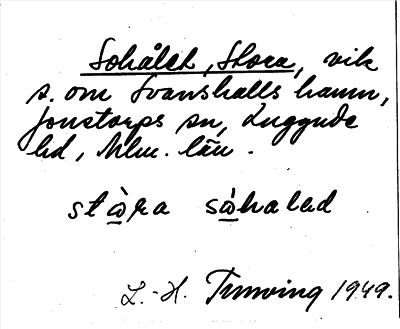 Sohålet, Stora, vik
s. om Svanshalls hamn,
Jonstorps sn, Luggude
hd, Mlm. län.
stὰ̱ra sὰ̱haled
L.-H. Tunving 1949.